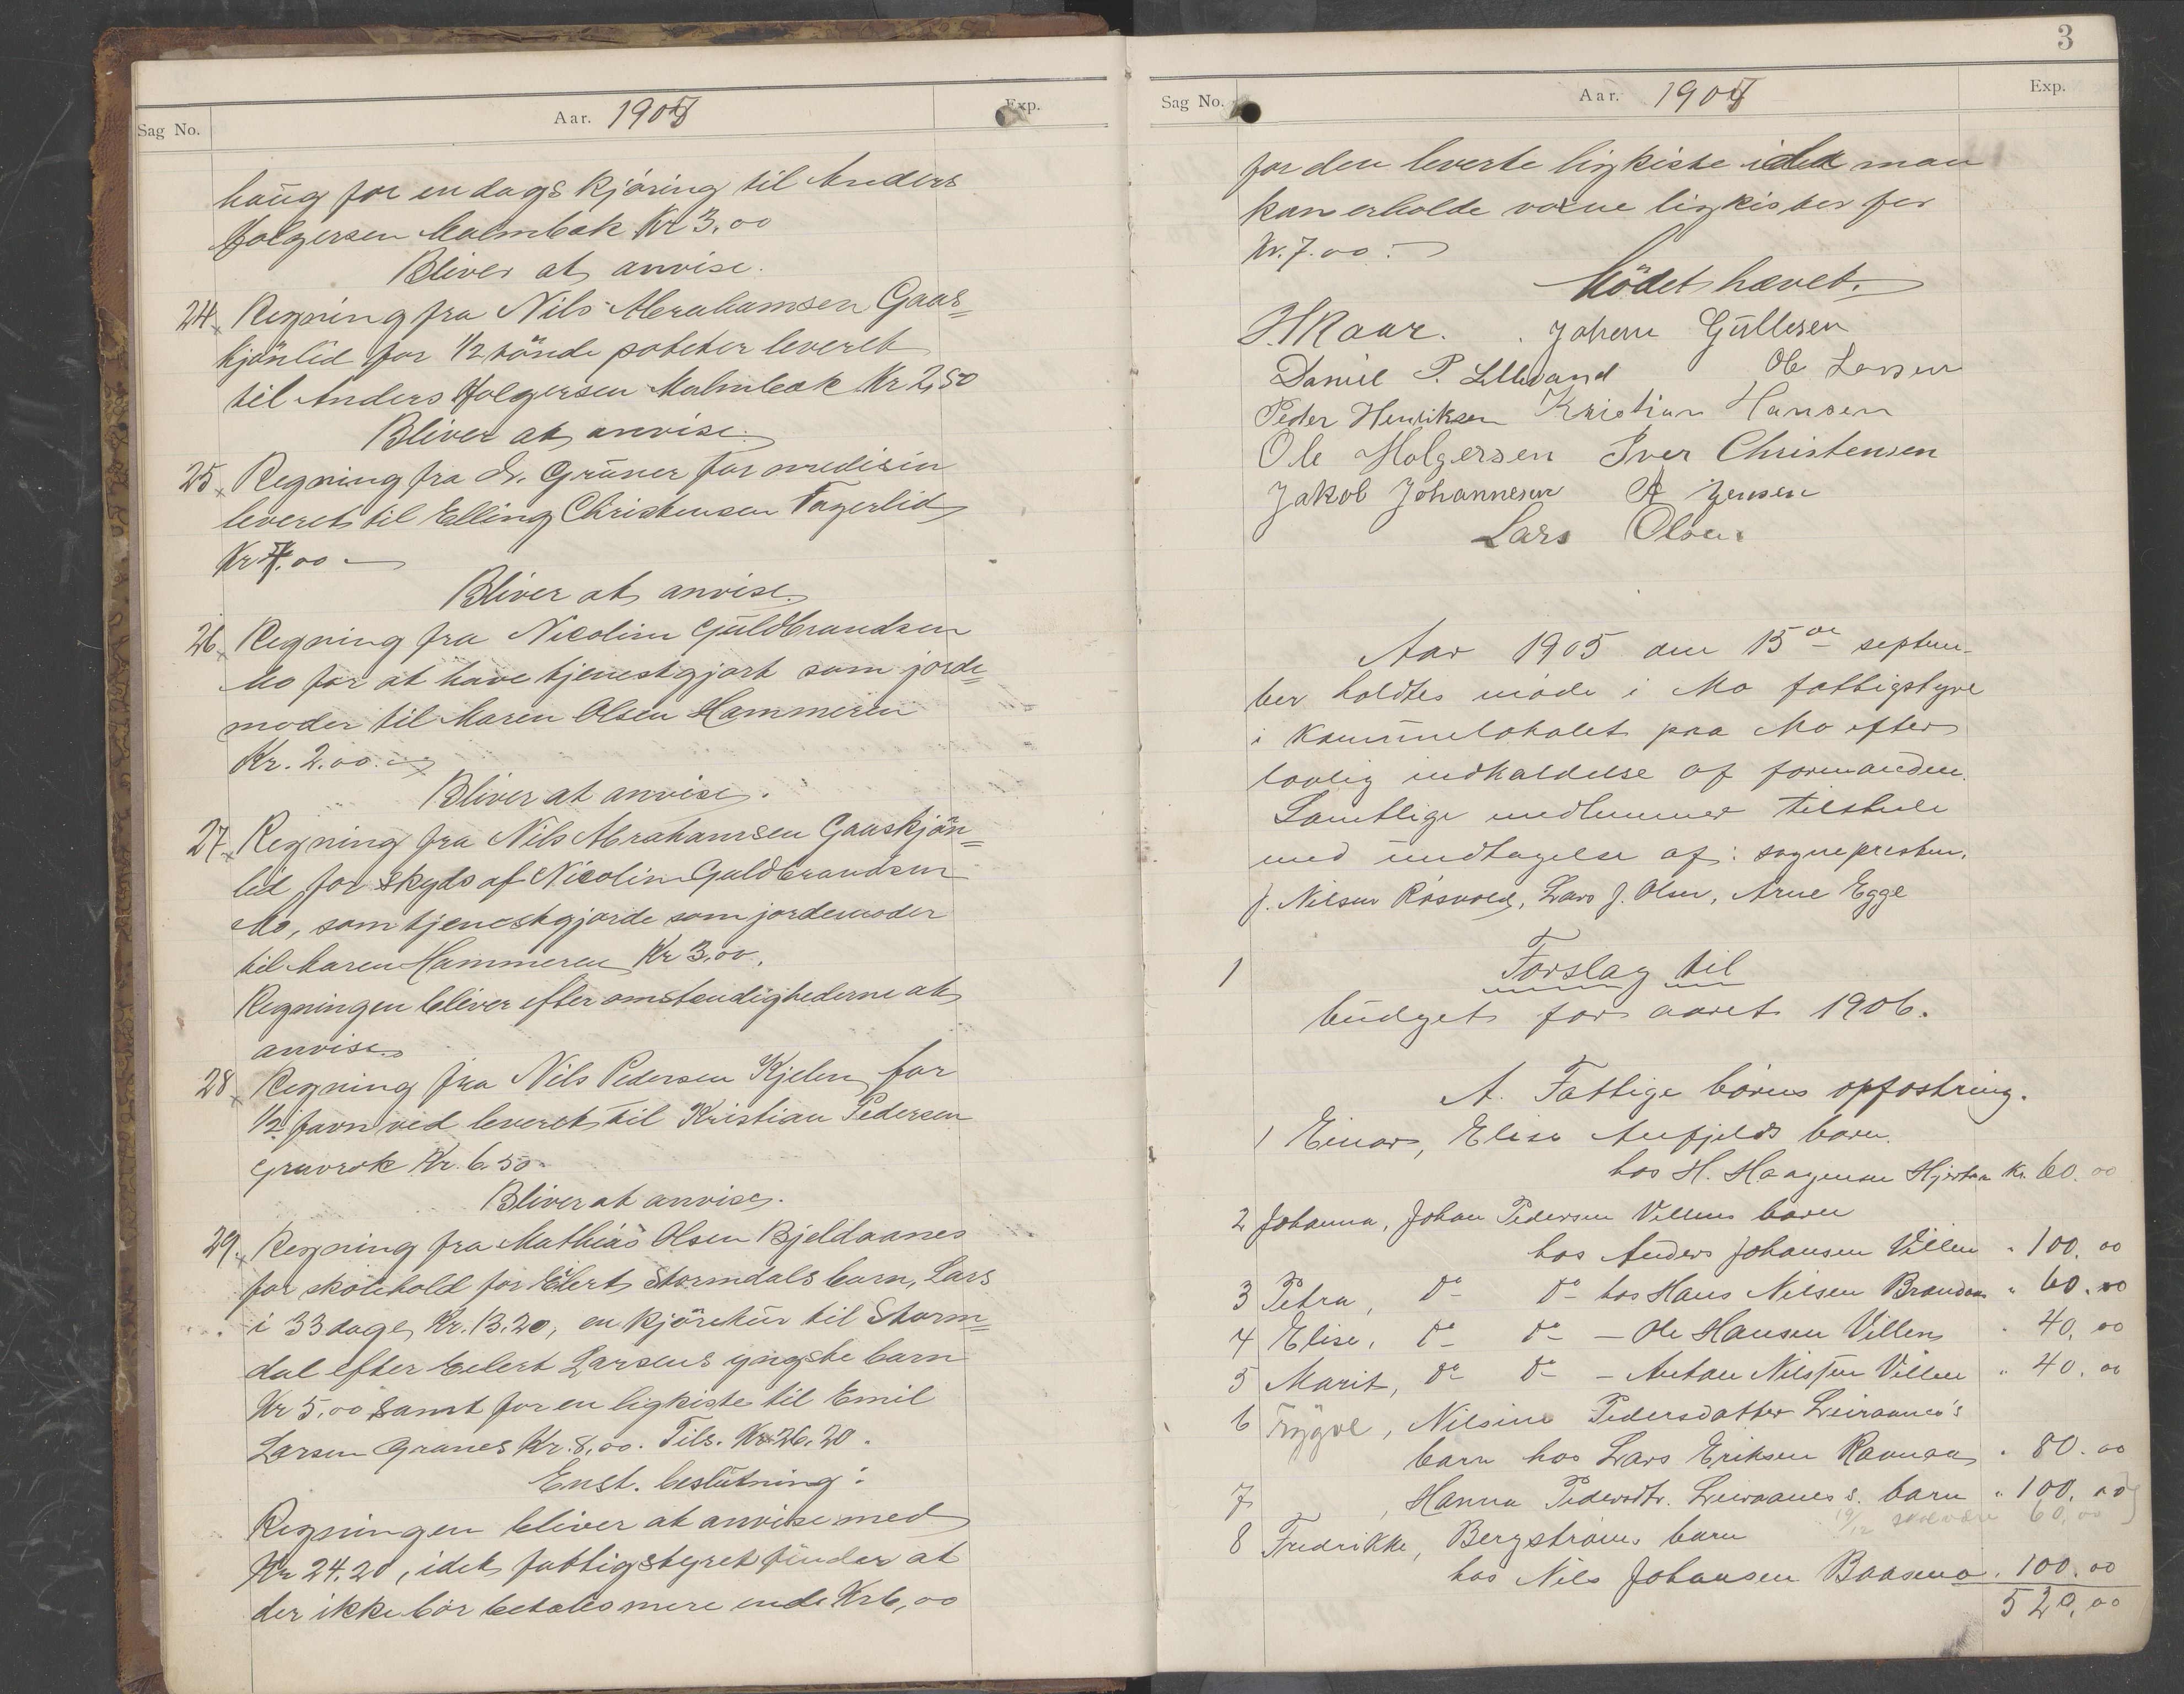 Sag No.
Aar. 1905
Exp.
haug for en dags kjøring til Anders
Holgersen Malmbak Kr 3,00
Bliver at anvise.
24. Regning fra Nils Abrahamsen Gaas=
kjönlid for 1/2 tönde poteter leveret
til Anders Holgersen Malmbak Kr 2,50
Bliver at anvise.
25. Regning fra Dr. Grüner for medisin
leveret til Elling Christensen Fagerlid
Kr 4,00
Bliver at anvise.
26. Regning fra Nicoline Guldbrandsen
Mo for at have tjenestgjort som jorde=
moder til Maren Olsen Hammeren
Kr. 2.00.
Bliver at anvise.
27. Regning fra Nils Abrahamsen Gaaskjön=
lid for skyds af Nicolin Guldbrandsen
Mo, som tjenestgjorde som jordemoder
til Maren Hammeren Kr 3,00.
Regningen bliver efter omstendighederne at
anvise.
28. Regning fra Nils Pedersen Kjelen for
1/2 favn ved leveret til Kristian Pedersen
Gruvrok Kr. 6.50.
Bliver at anvise.
29. Regning fra Mathias Olsen Bjeldaanes
for skolehold for Eilert Stormdals barn, Lars
i 33 dage, Kr. 13.20, en kjöretur til Storm=
dal efter Eilert Larsens yngste barn
Kr 5,00 samt for en ligkiste til Emil
Larsen Granes Kr. 8,00. Tils. Kr 26.20.
Enst. beslutning:
Regningen bliver at anvise med
Kr 24.20, idet fattigstyret finder at
der ikke bör betales mere end Kr 6,00
3
Sag No.
Aar. 1905
Exp.
for den leverte ligkiste idet man
kan erholde voxne ligkister for
Kr. 7.00.
Mödet hævet.
Johan Gullesen
Daniel P. Ole Larsen
Peder Henriksen Kristian Hansen
Ole Holgersen Iver Christensen
Jakob Johannesen A Jensen
Lars Olsen.
Aar 1905 den 15de septem-
ber holdtes möde i Mo fattigstyre
i kommunelokalet paa Mo efter
lovlig indkaldelse af formanden.
Samtlige medlemmer tilstede
med undtagelse af: sognepresten,
J. Nilsen Røsvold, Lars J. Olsen, Arne Egge
1 Forslag til
budget for aaret 1906.
A. Fattige börns opfostring.
1 Einar, Elise Aufjelds barn.
hos H. Haagensen Kr. 60.00
2 Johanna, Johan Pedersen Villens barn
hos Anders Johansen Villen " 100.00
3 Petra, do do hos Hans Nilsen " 60.00
4 Elise, do do - Ole Hansen Villen " 40.00
5 Marit, do do - Anton Nilssen Villen " 40.00
6 Trygve, Nilsine Pedersdatter Leiraanes's
barn hos Lars Eriksen Ravnaa " 80.00
7 , Hanna Pedersdtr. Leiraanes s. barn " 100.00
19/12 60,00
8 Fredrikke, Bergströms barn
hos Nils Johansen Baasmo " 100.00
520,00